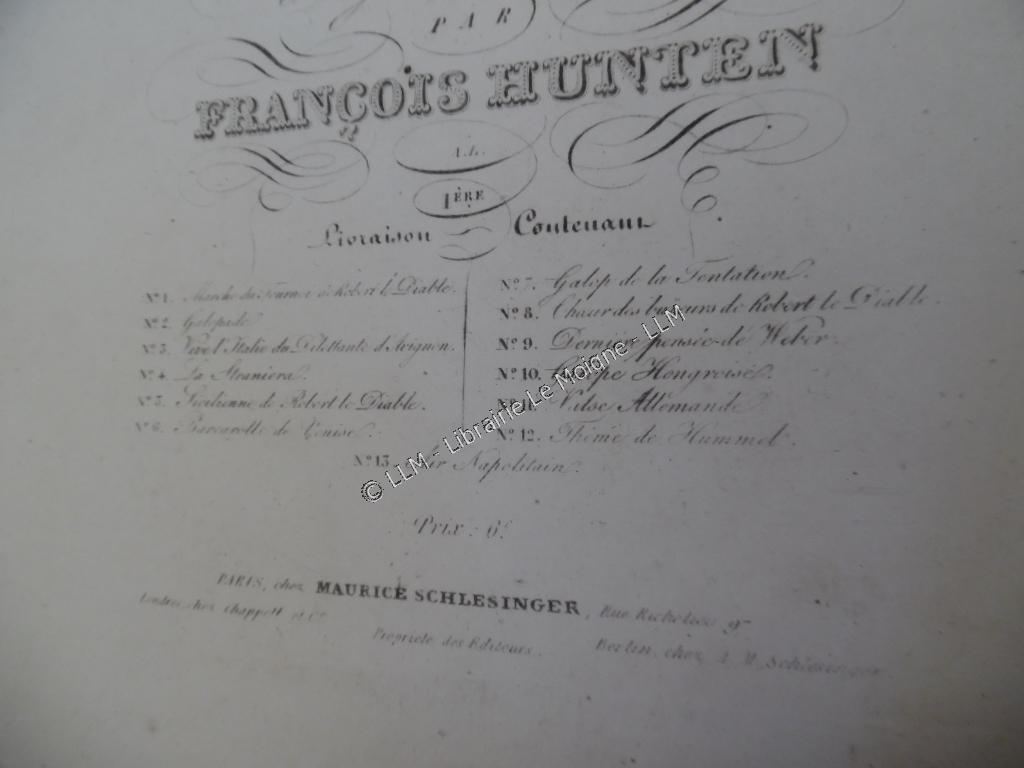 PAR
FRANÇOIS HUNTEN
A.L.
1ÈRE
Livraison Contenant
Nº 1. Marche du Tournoi de Robert le Diable.
Nº 2. Galopade
Nº 3. Vive l'Italie du Dilettante d'Avignon.
Nº 4. La Straniera.
Nº 5. Sicilienne de Robert le Diable.
Nº 6. Barcarolle de Venise.
Nº 7. Galop de la Tentation.
Nº 8. Chœur des buveurs de Robert le Diable.
Nº 9. Dernière pensée de Weber.
Nº 10. Hongroise.
Nº 11. Valse Allemande.
Nº 12. Thême de Hummel.
Nº 13. Air Napolitain.
Prix: 6f.
PARIS, chez MAURICE SCHLESINGER, Rue Richelieu 97
Londres, chez Chappell et Cº.
Propriété des Editeurs.
Berlin, chez A. M. Schlesinger.
© LLM - Librairie Le Moigne - LLM